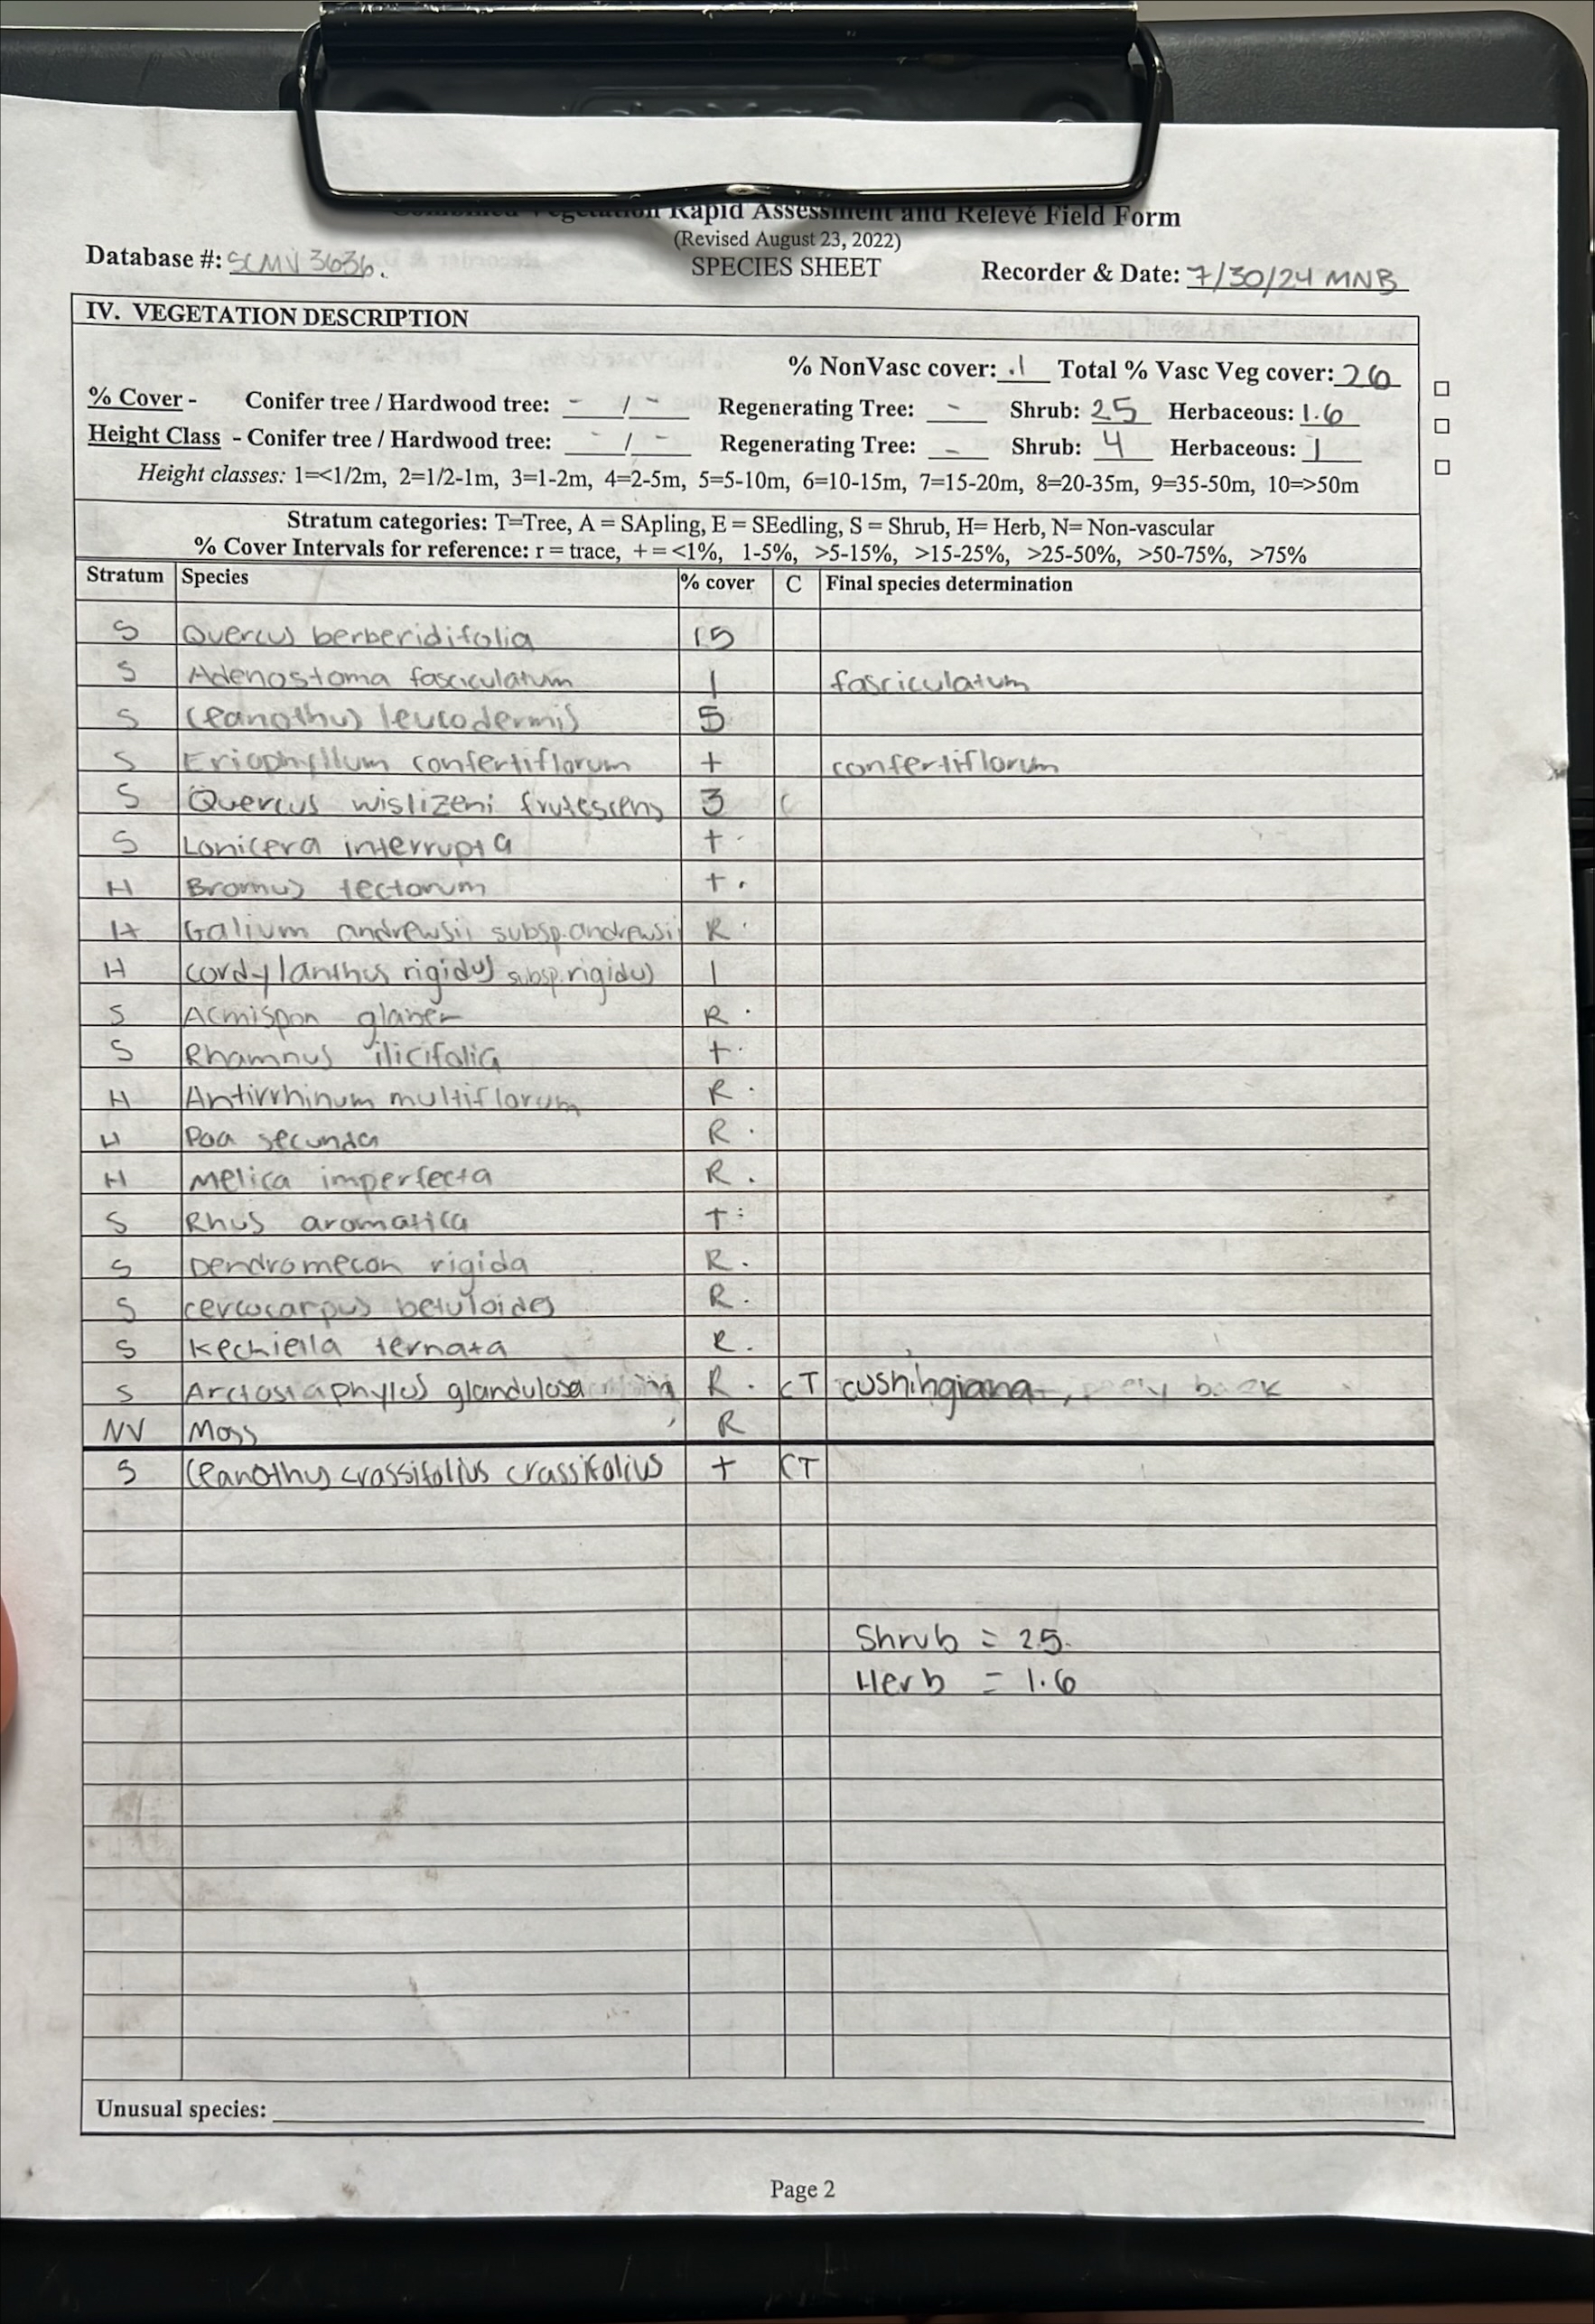 Combined Vegetation Rapid Assessment and Relevé Field Form
(Revised August 23, 2022)
Database #: SCMV3636. SPECIES SHEET Recorder & Date: 7/30/24 MNB
IV. VEGETATION DESCRIPTION
% NonVasc cover: .1 Total % Vasc Veg cover: 26
% Cover - Conifer tree / Hardwood tree: - / - Regenerating Tree: - Shrub: 25 Herbaceous: 1.6
Height Class - Conifer tree / Hardwood tree: - / - Regenerating Tree: - Shrub: 4 Herbaceous: 1
Height classes: 1=<1/2m, 2=1/2-1m, 3=1-2m, 4=2-5m, 5=5-10m, 6=10-15m, 7=15-20m, 8=20-35m, 9=35-50m, 10=>50m
Stratum categories: T=Tree, A = SApling, E = SEedling, S = Shrub, H= Herb, N= Non-vascular
% Cover Intervals for reference: r = trace, + = <1%, 1-5%, >5-15%, >15-25%, >25-50%, >50-75%, >75%
Stratum Species % cover C Final species determination
S Quercus berberidifolia 15
S Adenostoma fasciculatum 1 fasciculatum
S Ceanothus leucodermis 5
S Eriophyllum confertiflorum + confertiflorum
S Quercus wislizeni frutescens 3 C
S Lonicera interrupta +
H Bromus tectorum +
H Galium andrewsii subsp. andrewsii R
H Cordylanthus rigidus subsp. rigidus 1
S Acmispon glaber R
S Rhamnus ilicifolia +
H Antirrhinum multiflorum R
H Poa secunda R
H Melica imperfecta R
S Rhus aromatica +
S Dendromecon rigida R
S cercocarpus betuloides R
S Keckiella ternata R
S Arctostaphylus glandulosa R CT cushingiana
NV Moss R
S Ceanothus crassifolius crassifolius + CT
Shrub = 25
Herb = 1.6
Unusual species:
Page 2